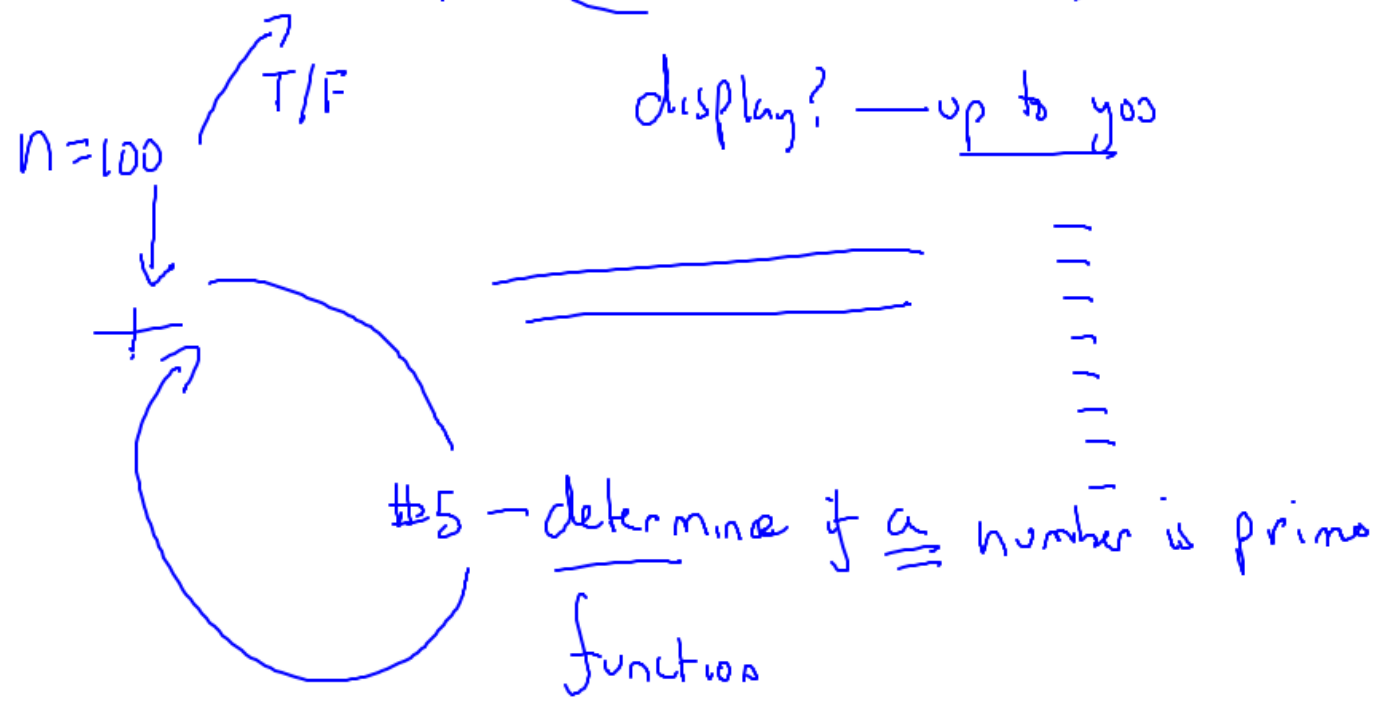 T/F
display? — up to you
n=100
+
#5 — determine if a number is prime
function